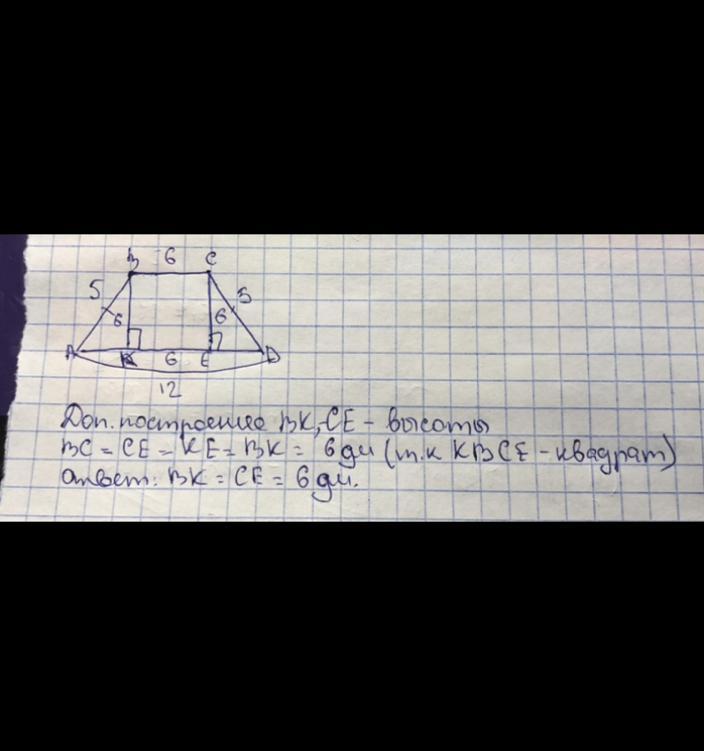 B 6 C
5 5
6 6
A K 6 E D
12
Доп. построение BK, CE - высоты
BC = CE = KE = BK = 6 дм (т.к KBCE - квадрат)
Ответ: BK = CE = 6 дм.